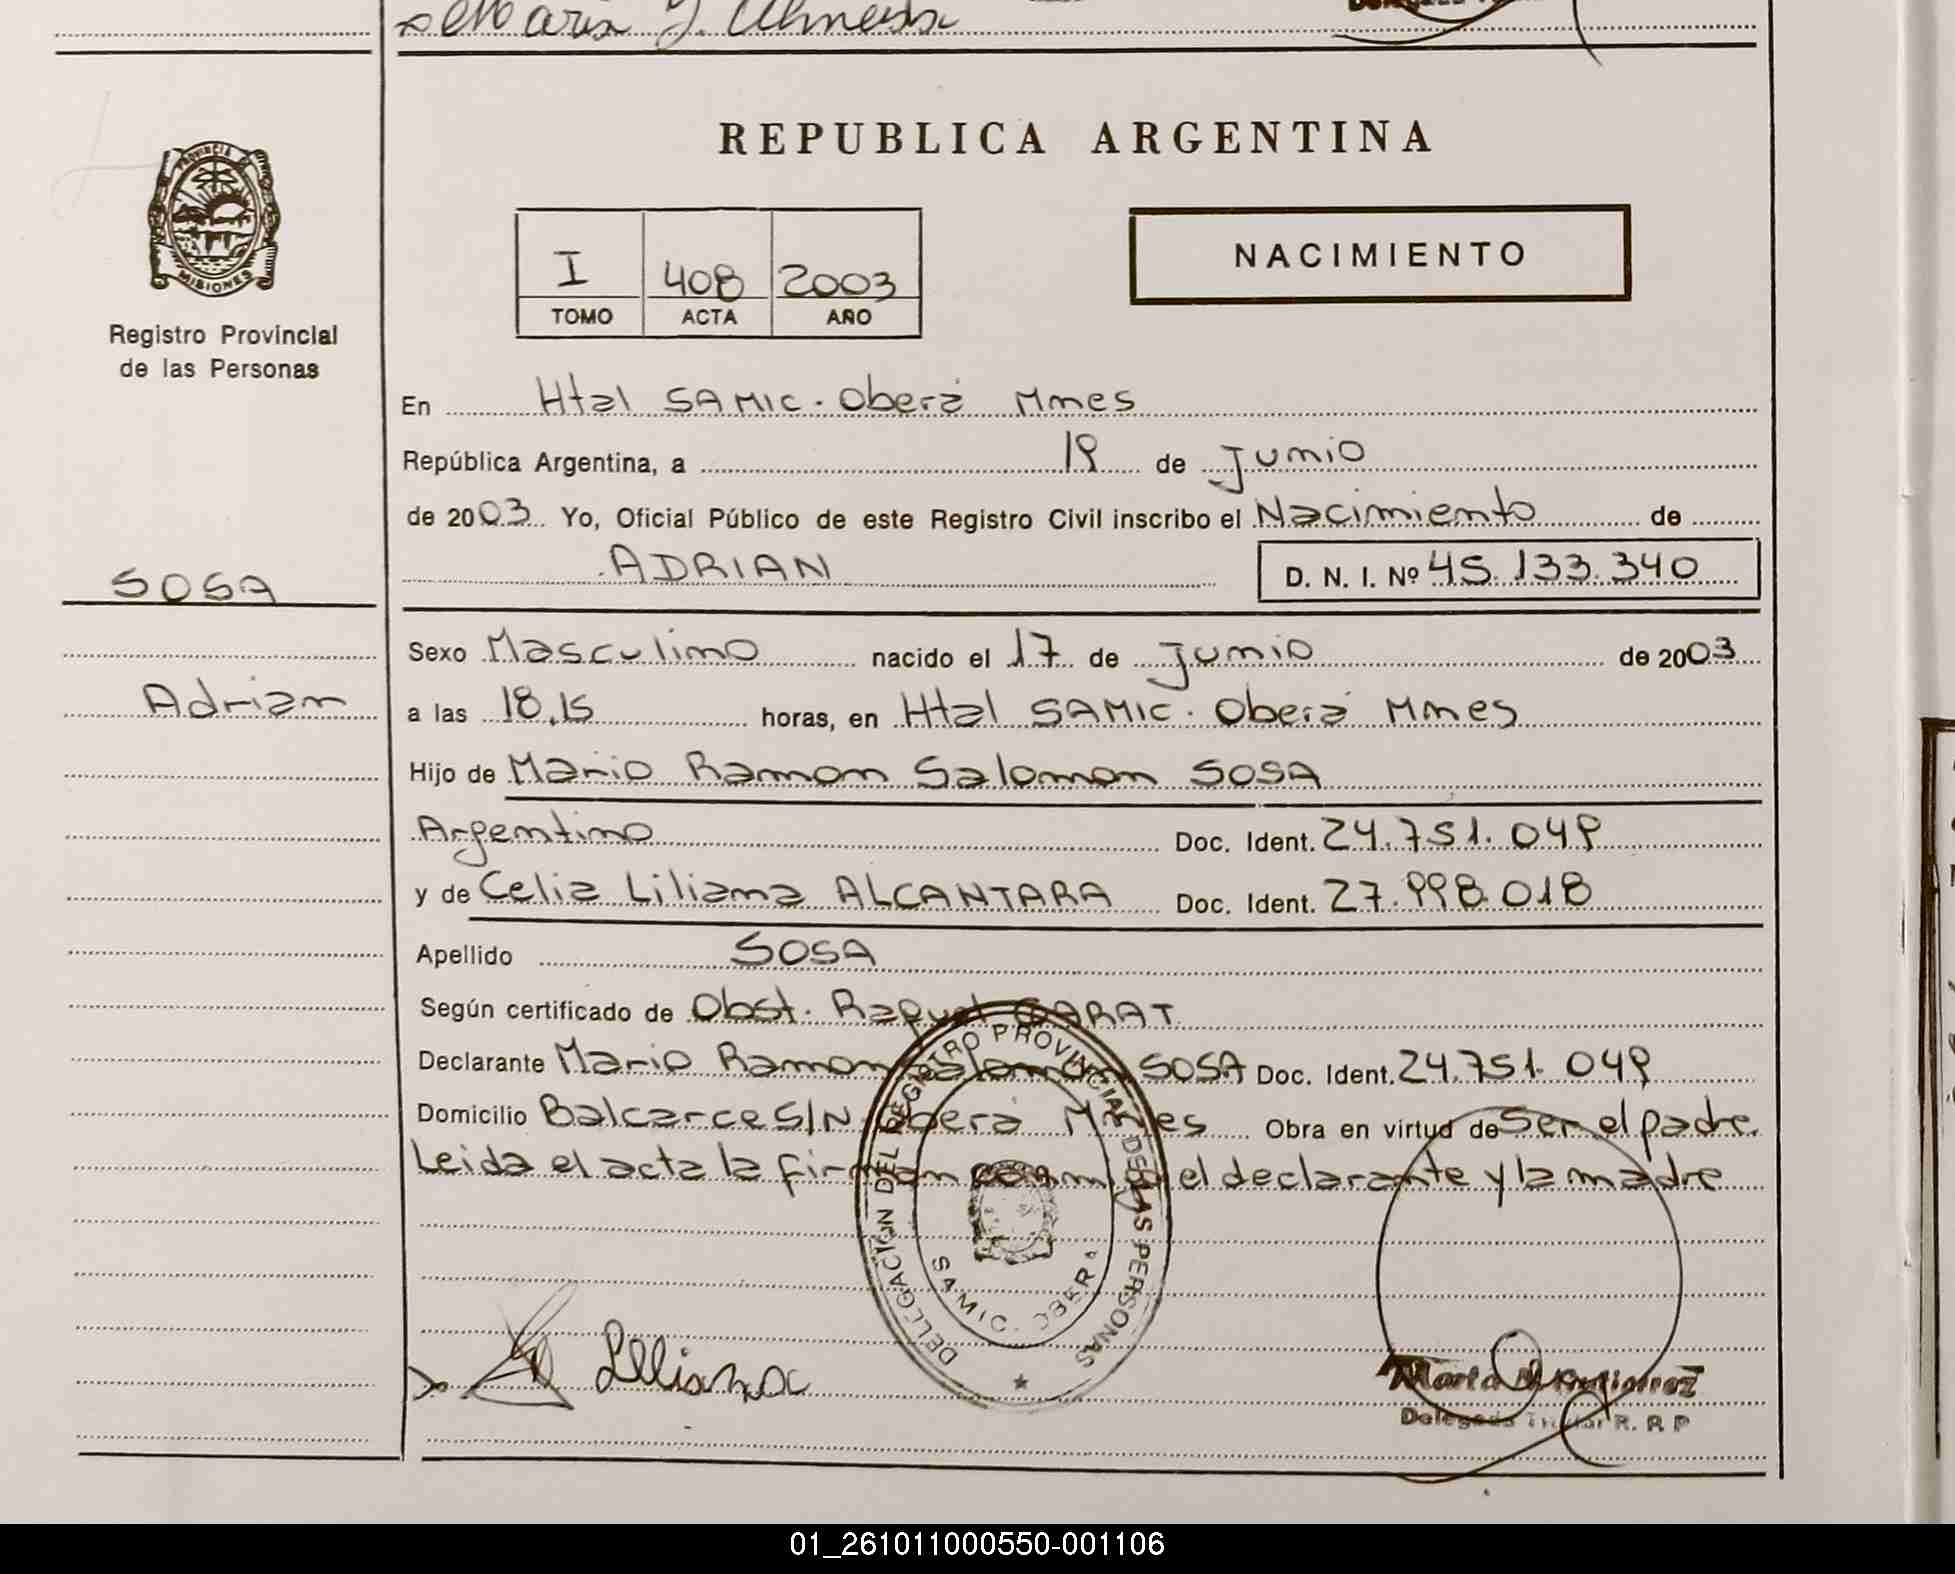 Maria J.
REPUBLICA ARGENTINA
PROVINCIA
MISIONES
Registro Provincial
de las Personas
I 408 2003
TOMO ACTA AÑO
NACIMIENTO
En Htal SAMIC. Oberá Mnes
República Argentina, a 19 de Junio
de 2003 Yo, Oficial Público de este Registro Civil inscribo el Nacimiento de
ADRIAN D. N. I. Nº 45.133.340
SOSA
Sexo Masculino nacido el 17 de Junio de 2003
Adrian
a las 18,15 horas, en Htal SAMIC. Oberá Mnes
Hijo de Mario Ramon Salomon SOSA
Argentino Doc. Ident. 24.751.049
y de Celia Liliana ALCANTARA Doc. Ident. 27.998.018
Apellido SOSA
Según certificado de Obst. Raquel GARAT
Declarante Mario Ramon Salomon SOSA Doc. Ident. 24.751.049
Domicilio Balcarce S/N Oberá Mnes Obra en virtud de Ser el padre.
Leida el acta la firman conmigo el declarante y la madre
DELEGACION DEL REGISTRO PROVINCIAL DE LAS PERSONAS
SAMIC. OBERA
Liliana
Maria Gutierrez
Delegada Titular R. R P
01_261011000550-001106